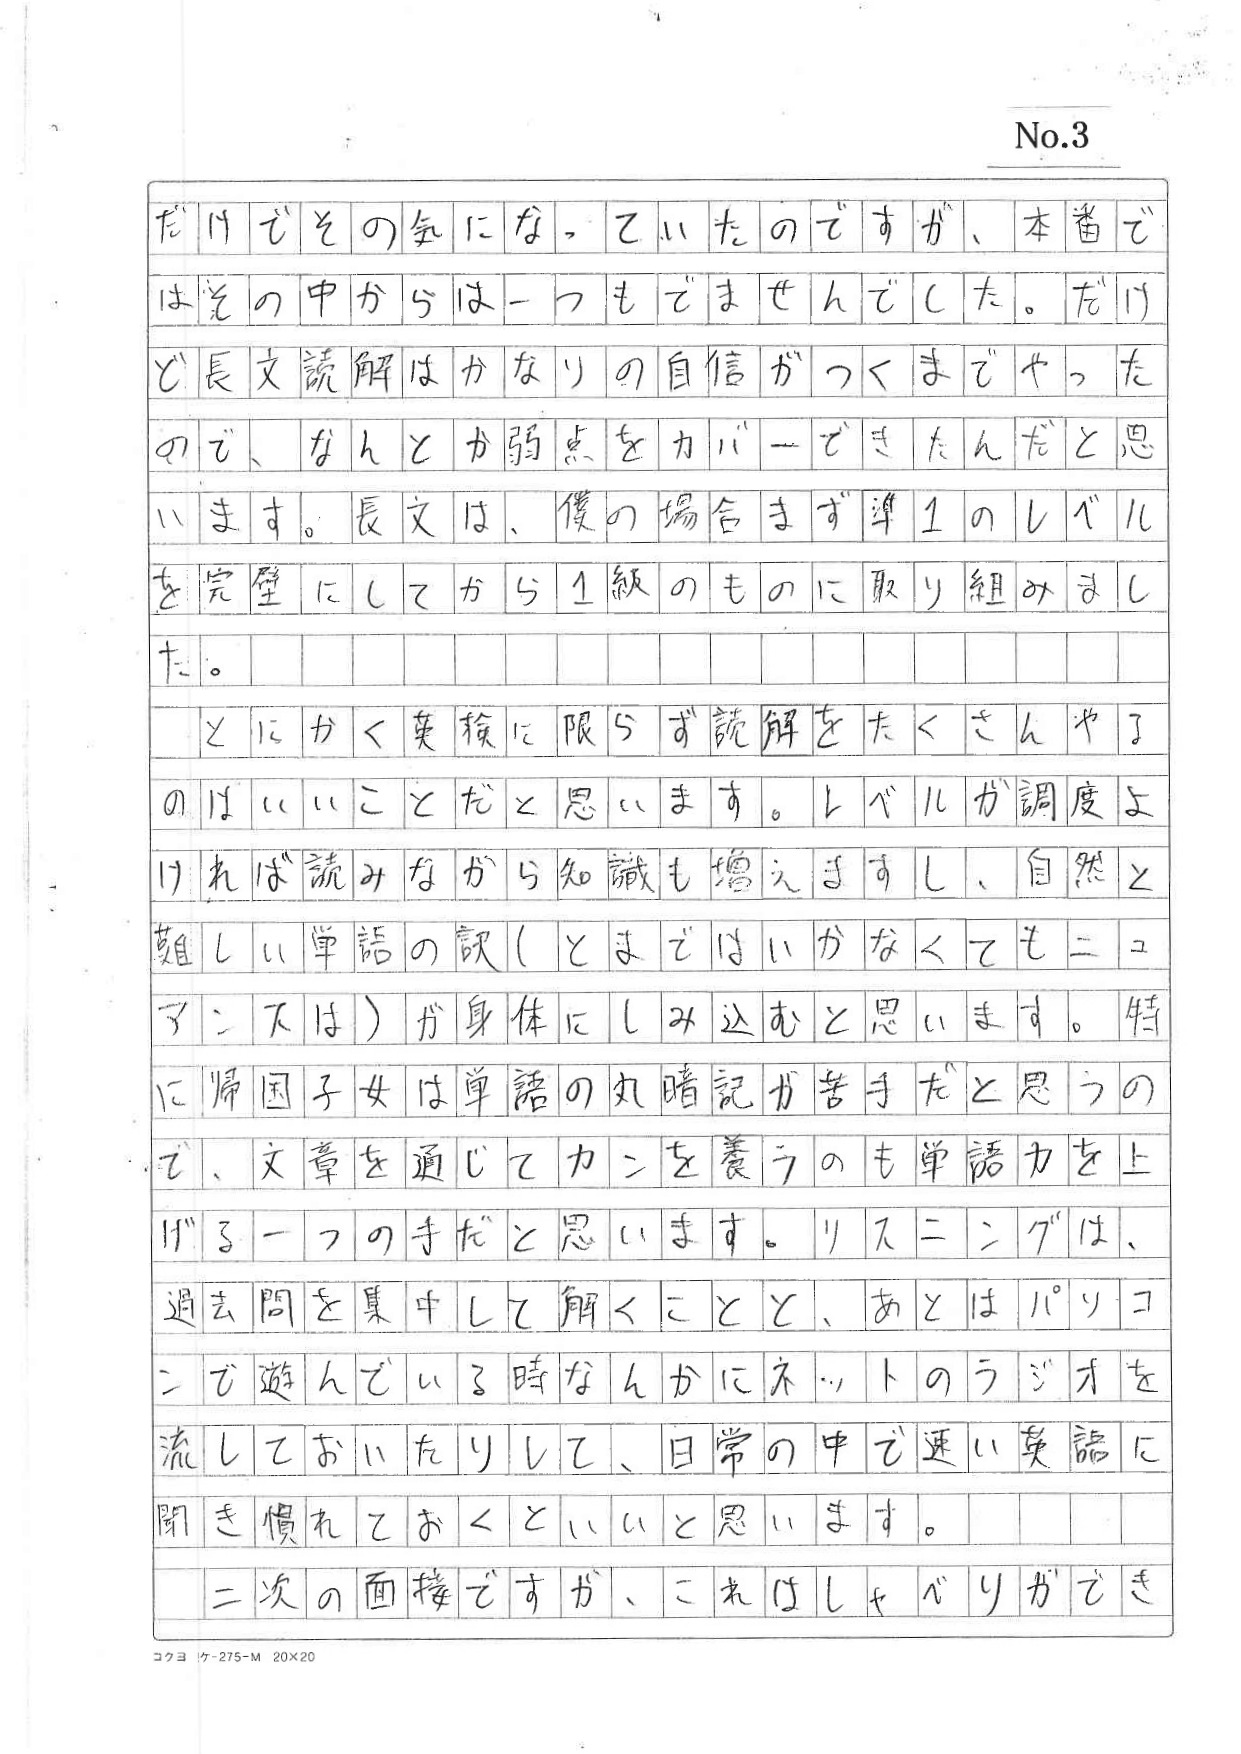 No.3
だけでその気になっていたのですが、本番で
はその中からは一つもでませんでした。だけ
ど長文読解はかなりの自信がつくまでやった
ので、なんとか弱点をカバーできたんだと思
います。長文は、僕の場合まず準1のレベル
を完璧にしてから1級のものに取り組みまし
た。
とにかく英検に限らず読解をたくさんやる
のはいいことだと思います。レベルが調度よ
ければ読みながら知識も増えますし、自然と
難しい単語の訳(とまではいかなくてもニュ
アンスは)が身体にしみ込むと思います。特
に帰国子女は単語の丸暗記が苦手だと思うの
で、文章を通じてカンを養うのも単語力を上
げる一つの手だと思います。リスニングは、
過去問を集中して解くことと、あとはパソコ
ンで遊んでいる時なんかにネットのラジオを
流しておいたりして、日常の中で速い英語に
聞き慣れておくといいと思います。
二次の面接ですが、これはしゃべりができ
コクヨ ケ-275-M 20×20